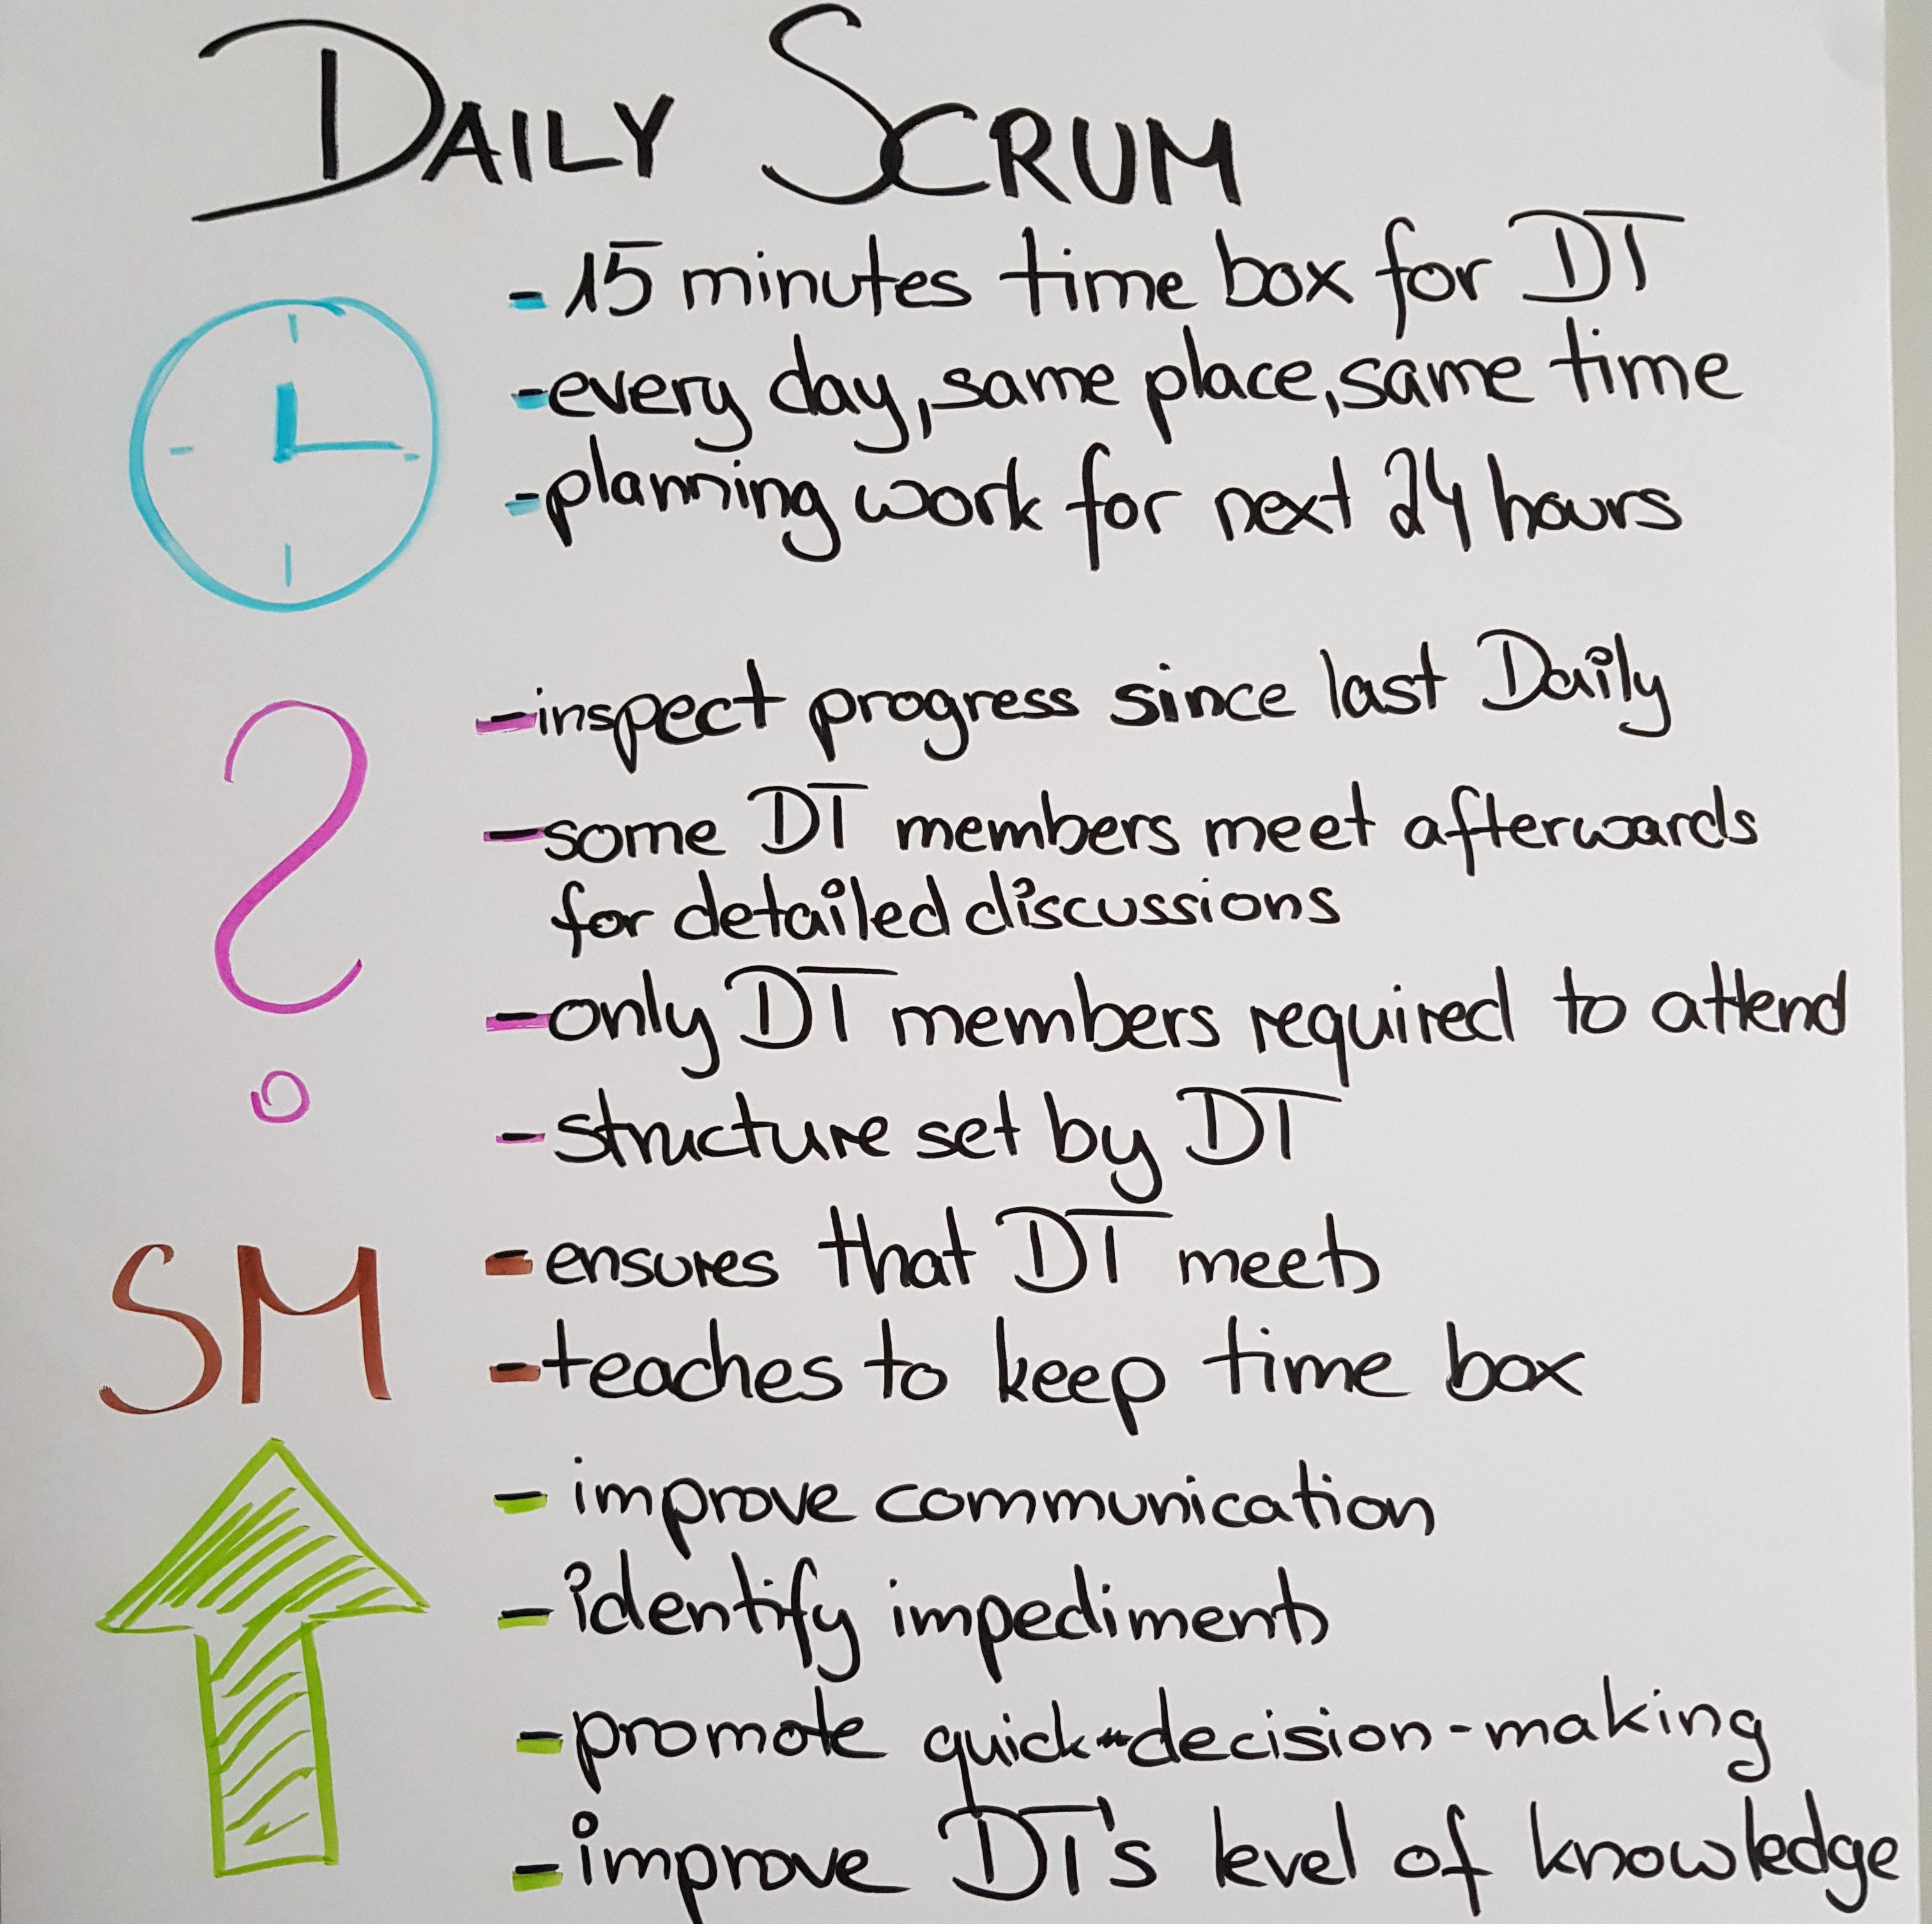 DAILY SCRUM
- 15 minutes time box for DT
- every day, same place, same time
- planning work for next 24 hours
- inspect progress since last Daily
- some DT members meet afterwards
for detailed discussions
- only DT members required to attend
- structure set by DT
SM
- ensures that DT meets
- teaches to keep time box
- improve communication
- identify impediments
- promote quick-decision-making
- improve DT's level of knowledge